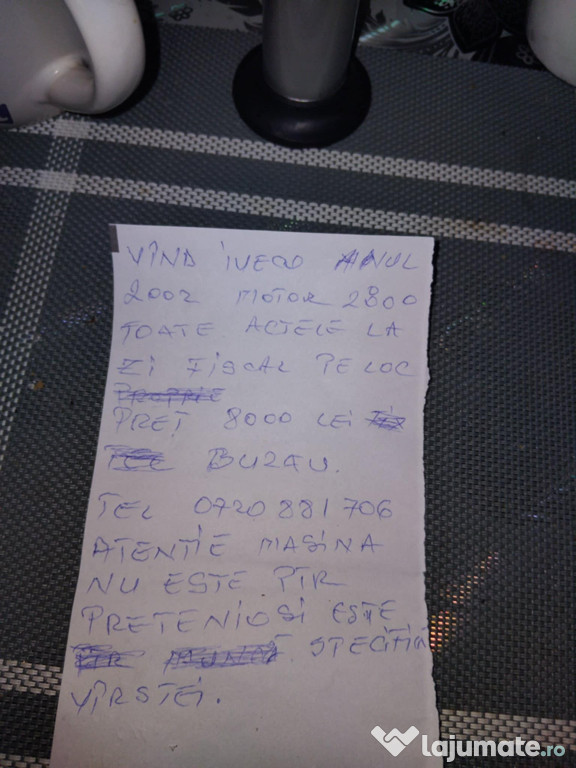 VÎND IVECO ANUL
2002 MOTOR 2800
TOATE ACTELE LA
ZI FISCAL PE LOC
PROPRIE
PREȚ 8000 LEI
BUZAU.
TEL 0720 881 706
ATENTIE MASINA
NU ESTE PTR
PRETENIOSI ESTE
SPECIFIC
VÎRSTEI.
lajumate.ro